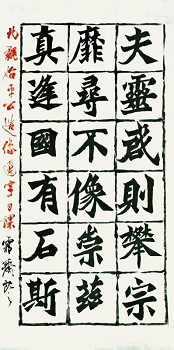 夫靈感則攀宗
靡尋不像崇茲
真逢國有石斯
北魏始平公造像字日課